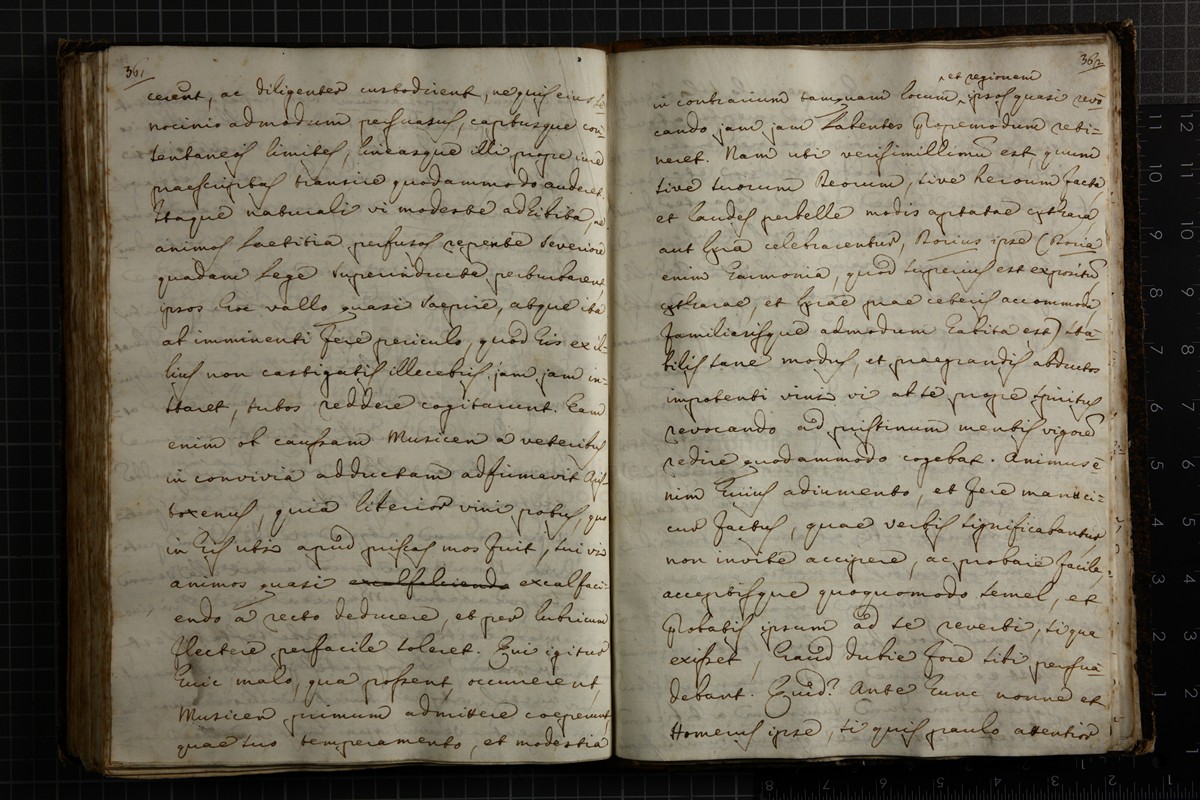 361
cerent, ac diligenter custodirent, ne quis eius le-
nocinio admodum persuasus, captusque con-
sentaneos limites, lineasque illi prope iure
praescriptas transire quodammodo auderet.
Itaque naturali vi modeste adhibita, ac
animos laetitia perfusos repente severiore
quadam lege superinducta perturbarent
ipsos hoc vallo quasi saepire, atque ita
ab imminenti fere periculo, quod his ex il-
lius non castigatis illecebris jam jam in-
staret, tutos reddere cogitarunt. Eam
enim ob caussam Musicen a veteribus
in convivia adductam adfirmavit Aris-
toxenus, quia liberior vini potus, quo
in his uti apud priscas mos fuit, sui vi
animos quasi excalficiendo excalfaci-
endo a recto deducere, et per lubricum
flectere perfacile soleret. Qui igitur
huic malo, qua possent, occurrerent,
Musicen primum admittere coeperunt,
quae suo temperamento, et modestia
362
et regionem
in contrarium tamquam locum ipsos quasi revo-
cando jam jam labentes propemodum reti-
neret. Nam ubi verisimillimum est quum
sive suorum Deorum, sive heroum facta,
et laudes perbelle modis aptatae cythara
aut lyra celebrarentur, Dorius ipse (Doria
enim harmonia, quod superius est expositum
cytharae, et lyrae prae ceteris accommoda,
familiarisque admodum habita est) sta-
bilis sane modus, et praegrandis abductos
impotenti vini vi a se prope spiritus
revocando ad pristinum mentis vigorem
redire quodammodo cogebat. Animus e-
nim huius adiumento, et fere mansue-
cum factus, quae verbis significabantur,
non invite accipere, ac probare facile,
acceptisque quoquomodo semel, et
probatis ipsum ad se reverti, sique
exisset, haud dubie fore sibi persua-
debant. Quid? Ante hunc nonne et
Homerus ipse, si quis paulo attentior